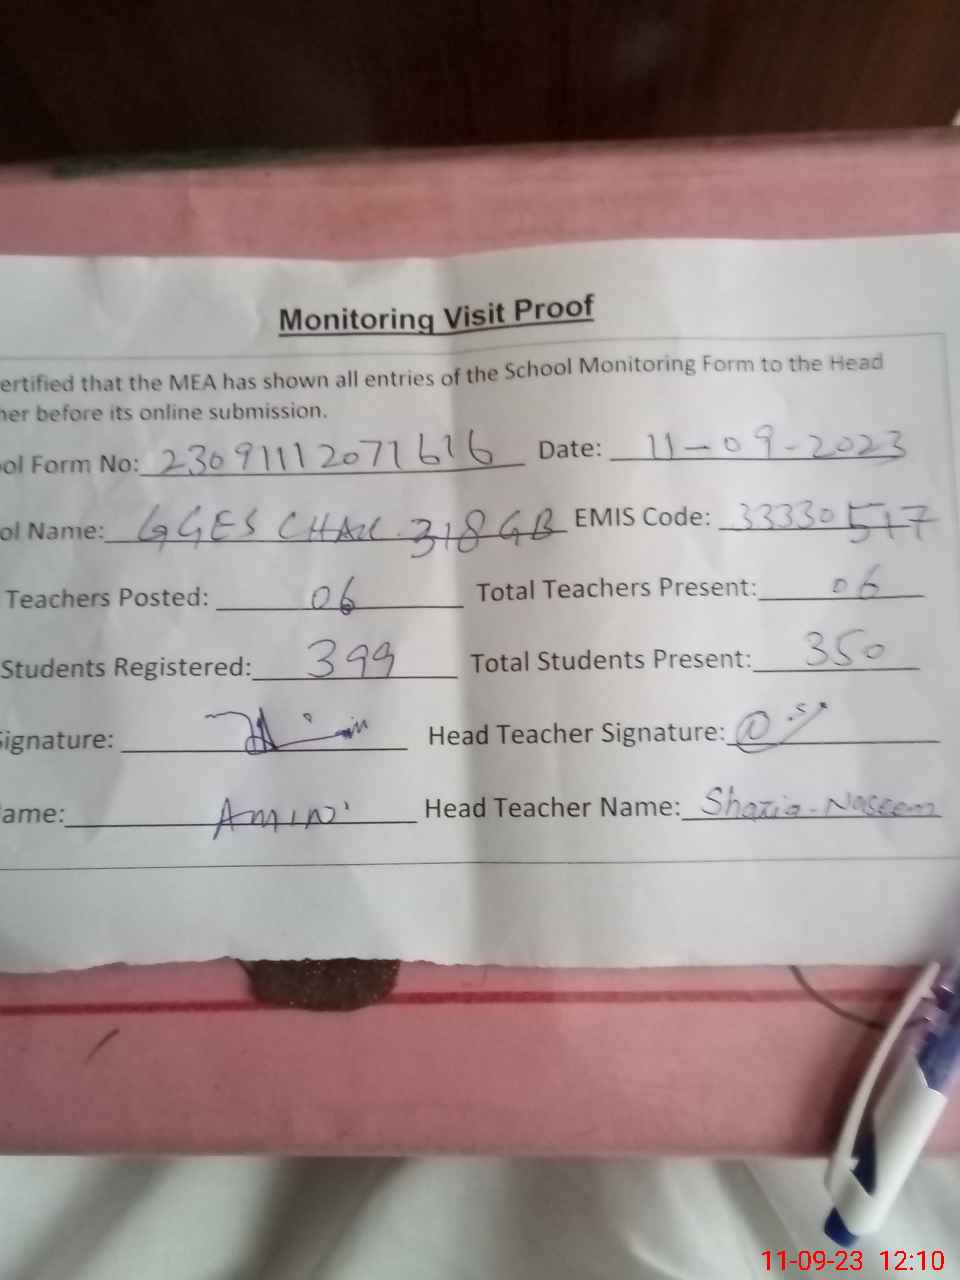 Monitoring Visit Proof
ertified that the MEA has shown all entries of the School Monitoring Form to the Head
her before its online submission.
ol Form No: 23091112071616 Date: 11-09-2023
ol Name: GGES CHAK 318 GB EMIS Code: 33330517
Teachers Posted: 06 Total Teachers Present: 06
Students Registered: 399 Total Students Present: 350
Signature: Head Teacher Signature:
ame: AMIN Head Teacher Name: Shazia-Naseem
11-09-23 12:10